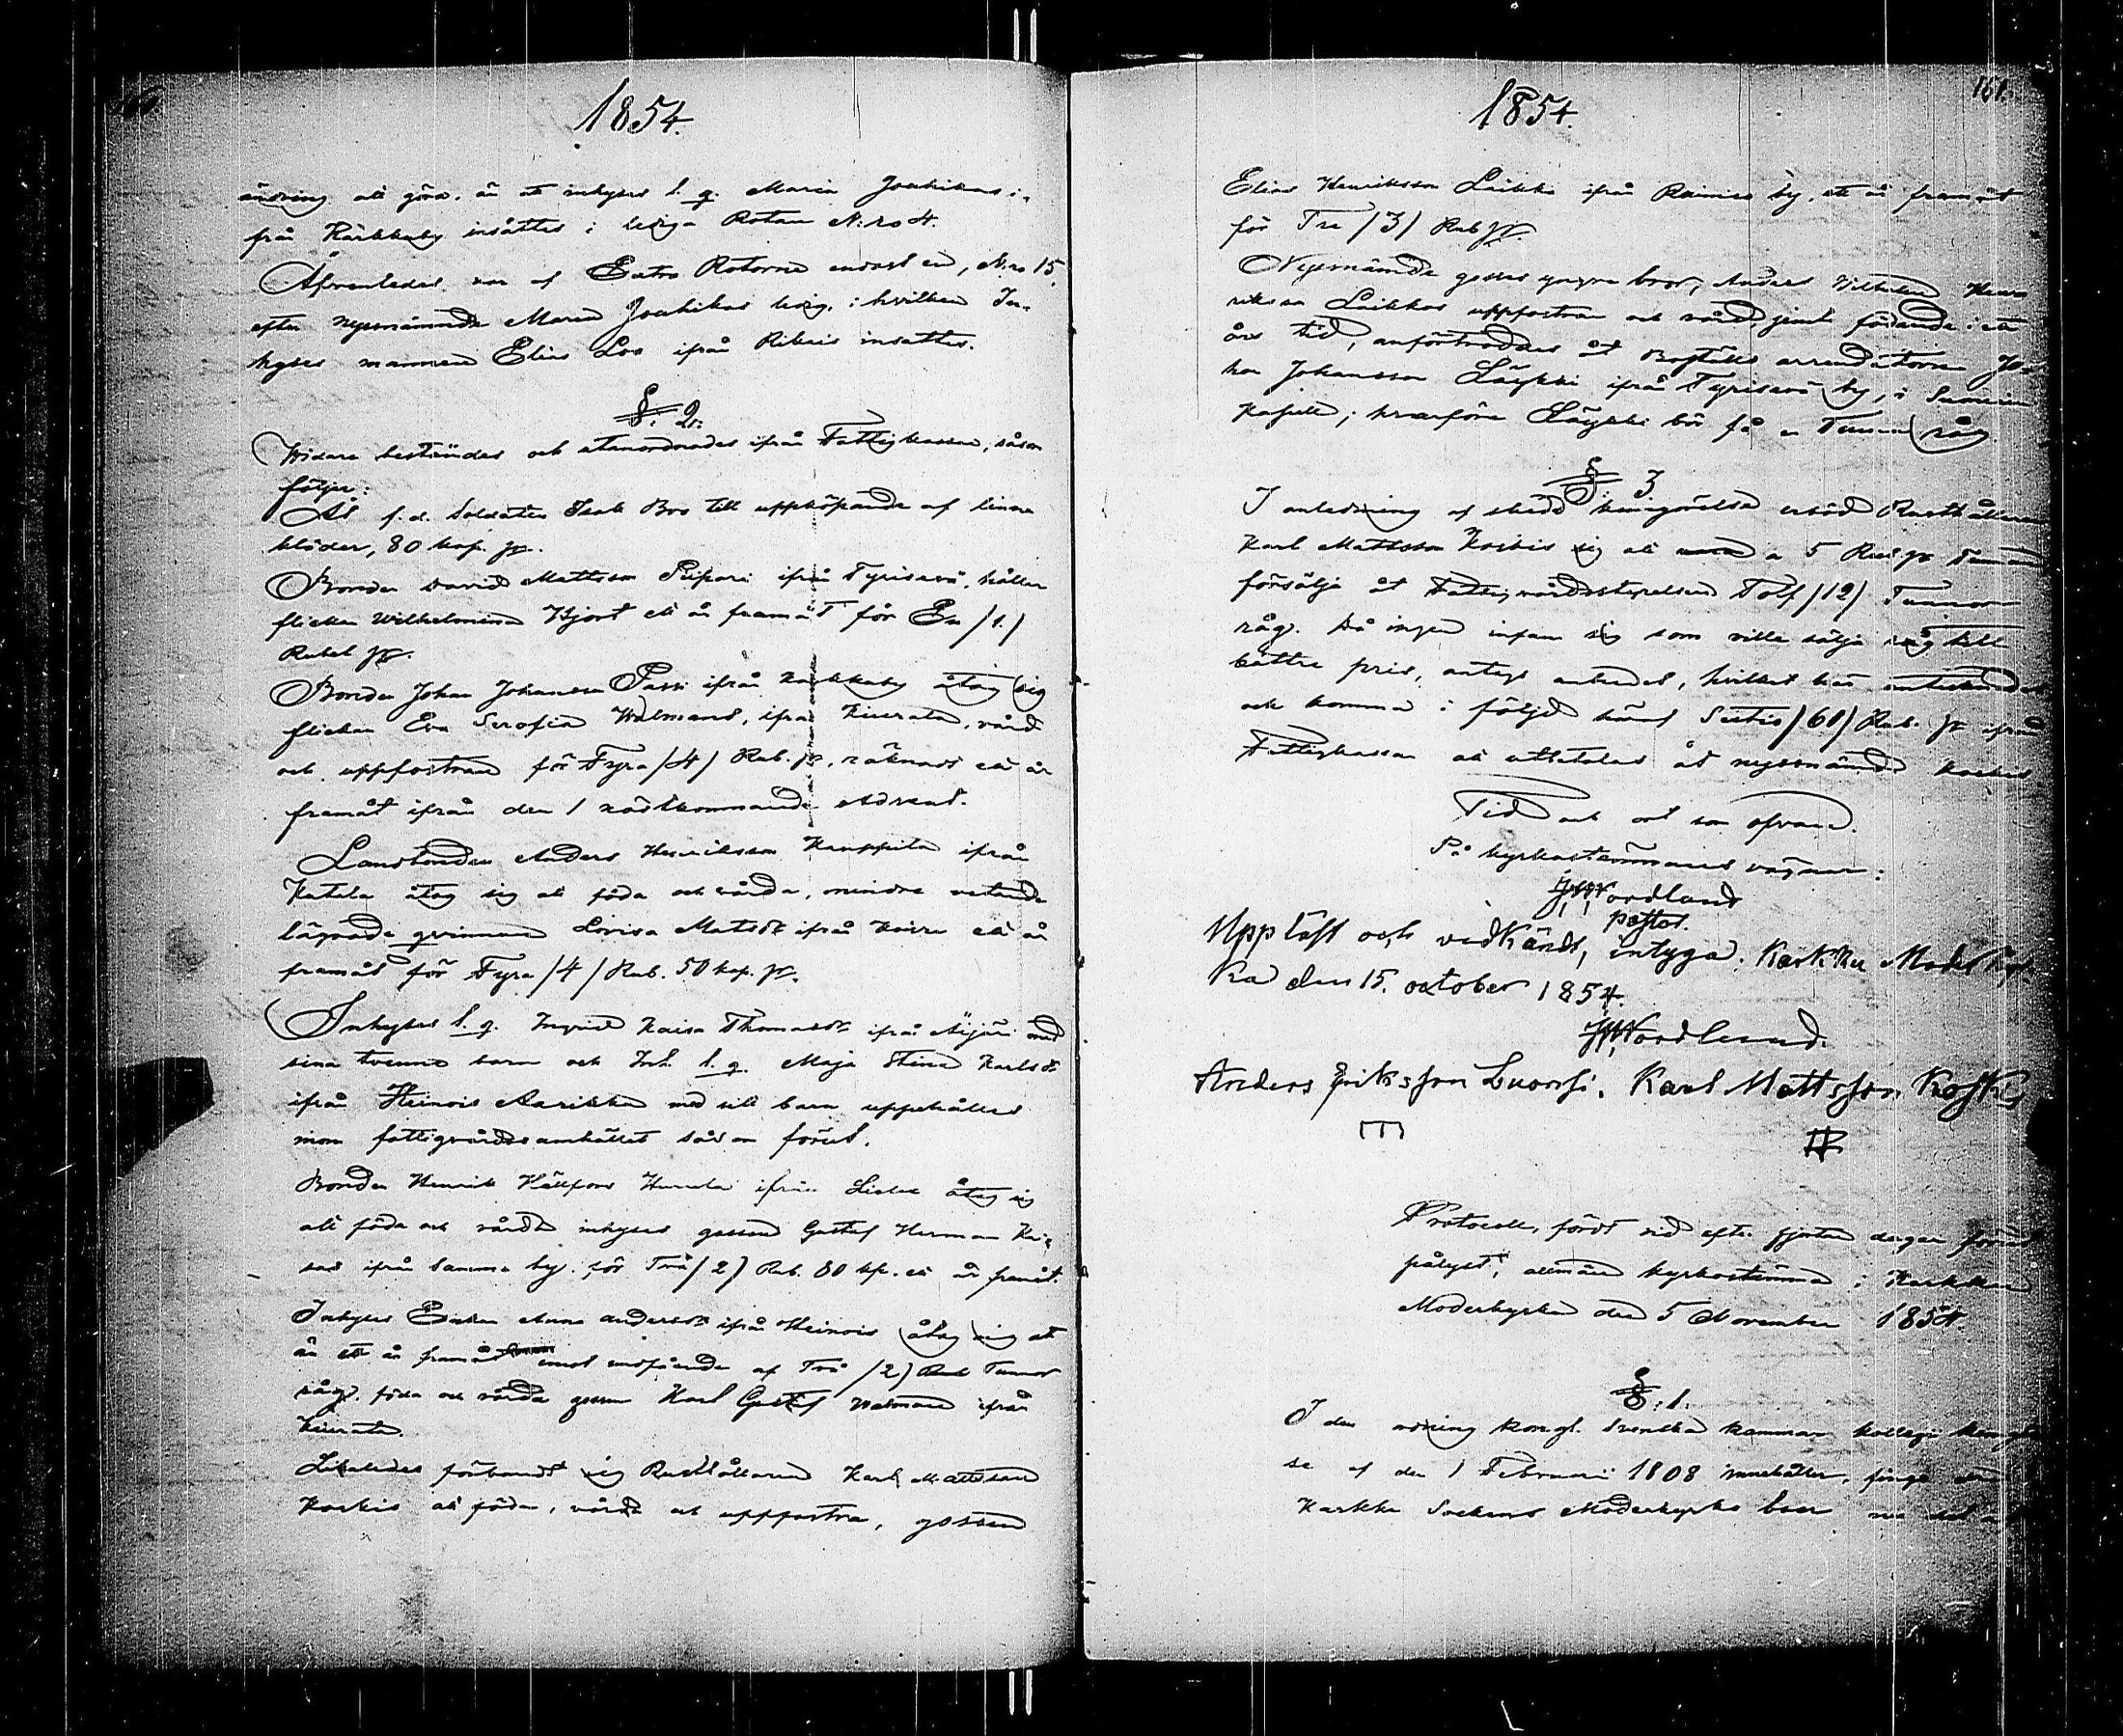 160
1854.
ändring att göra, än att inhyses l. q. Maria Joutsikas i-
från Kärkkaby insättes i lediga Rotan N:ro 4.
Äfvenledes var af Extra Rotorne endast en, N:ro 15,
efter nyssnämnde Maria Joutsikas ledig, i hvilken In-
hyses mannen Elias Loo ifrån Ribois insattes.
§. 2.
Widare bestämdes och utanordnades ifrån Fattigkassan, såsom
följer:
Åt f. d. Soldaten Isak Bro till uppköpande af linne
kläder, 80 kop. Sr.
Bonden David Mattsson Piipari ifrån Tyrisevä, håller
flickan Wilhelmina Hjort ett år framåt för En /1/
Rubel Sr.
Bonden Johan Johansson Passi ifrån Karkkuby åtog sig
flickan Eva Serafia Walmans, ifrån Kiurala, vård
och uppfostran för Fyra /4/ Rub. Sr, räknadt ett år
framåt ifrån den 1 nästkommande Advent.
Landbonden Anders Henriksson Kauppila ifrån
Kutala åtog sig att föda och vårda, mindre vetande
lägrade qvinnan Lovisa Matsdr ifrån Koivu ett år
framåt för Fyra /4/ Rub. 50 kop. Sr.
Inhyses l. q. Ingrid Kaisa Thomasdr ifrån Äijäri med
sina tvenne barn och Inh. l. q. Maja Stina Karlsdr
ifrån Heinois Aarikka med sitt barn uppehålles
inom fattigvårdssamhället såsom förut.
Bonden Henrik Hällfors Hunala ifrån Lielax åtog sig
att föda och vårda inhyses gossen Gustaf Herman Kai-
sas ifrån samma by för Två /2/ Rub. 80 kp. ett år framåt.
Inhyses Enkan Anna Andersdr ifrån Heinois åtog sig att
än ett år framåt emot undfående af Två /2/ Tunnor
råg, föda och vårda gossen Karl Gustaf Walmans ifrån
Kiurala.
Likaledes förbandt sig Rusthållaren Karl Mattsson
Koskis att föda, vårda och uppfostra, gossen
161.
1854.
Elias Henriksson Laikko ifrån Rainio by, ett år framåt
för Tre /3/ Rub Sr.
Nyssnämnde gosses yngre bror, Anders Wilhelm Hen-
riksson Laikkos uppfostran och vård jemte födande i ett
års tid, anförtroddes åt Boställs arrendatorn Jo-
han Johansson Läykki ifrån Tyrisevä by, i Suoniemi
Kapell; hvarföre Läykki bör få en Tunna råg.
§. 3
I anledning af skedd kungörelse erböd Rusthållaren
Karl Mattsson Koskis sig att a 5 Rub Sr Tunnan
försälja åt Fattigvårdsstyrelsen Tolf /12/ Tunnor
råg. Då ingen infann sig som ville sälja råg till
bättre pris, antogs anbudet, hvilket här antecknades
och komma i följd häraf Sextio /60/ Rub. Sr ifrån
Fattigkassan att utbetalas åt nyssnämnde Koskis
Tid och ort som ofvan.
På kyrkostämmans vägnar:
JWNordlund
pastor.
Uppläst och vidkändt, intyga: Karkku Moderkyr-
ka den 15. october 1854.
JWNordlund.
Anders Eriksson Luossi. Karl Mattsson Koskis
Protocoll, fördt vid efter fjorton dagar förut
pålyst, allmän kyrkostämma i Karkku
Moderkyrka den 5 November 1854.
§. 1.
I den ordning kongl. Svenska kammar kollegii kungörel-
se af den 1 Februari 1808 innehåller, finge
Karkku Sockens Moderkyrko boer nu